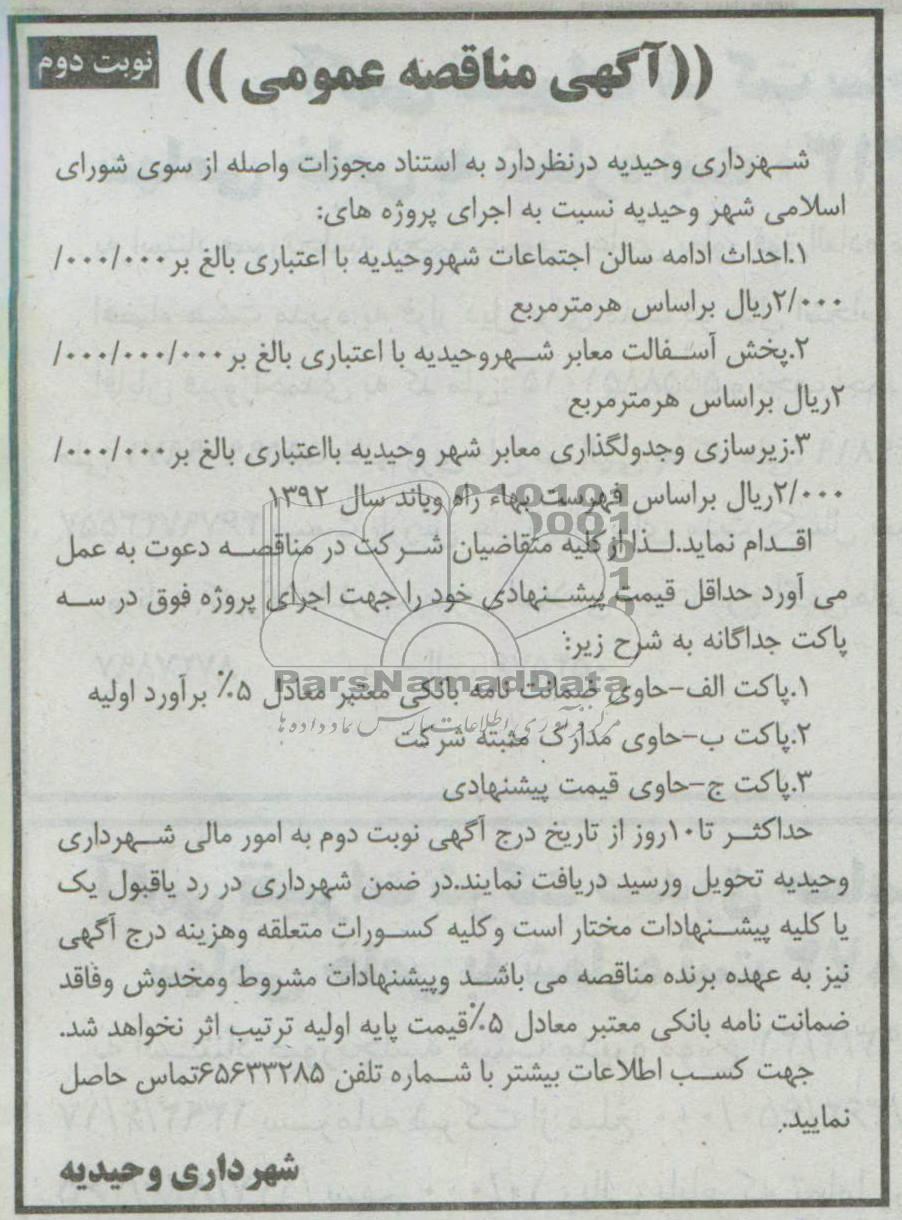 ((آگهی مناقصه عمومی))
نوبت دوم
شهرداری وحیدیه درنظردارد به استناد مجوزات واصله از سوی شورای
اسلامی شهر وحیدیه نسبت به اجرای پروژه های:
۱.احداث ادامه سالن اجتماعات شهروحیدیه با اعتباری بالغ بر ۰۰۰/۰۰۰/
۲/۰۰۰ریال براساس هرمترمربع
۲.پخش آسفالت معابر شهروحیدیه با اعتباری بالغ بر ۰۰۰/۰۰۰/۰۰۰/
۲ریال براساس هرمترمربع
۳.زیرسازی وجدولگذاری معابر شهر وحیدیه بااعتباری بالغ بر ۰۰۰/۰۰۰/
۲/۰۰۰ریال براساس فهرست بهاء راه وباند سال ۱۳۹۲
اقدام نماید.لذا ازکلیه متقاضیان شرکت در مناقصه دعوت به عمل
می آورد حداقل قیمت پیشنهادی خود را جهت اجرای پروژه فوق در سه
پاکت جداگانه به شرح زیر:
۱.پاکت الف-حاوی ضمانت نامه بانکی معتبر معادل ۵٪ برآورد اولیه
۲.پاکت ب-حاوی مدارک مثبته شرکت
۳.پاکت ج-حاوی قیمت پیشنهادی
حداکثر تا۱۰روز از تاریخ درج آگهی نوبت دوم به امور مالی شهرداری
وحیدیه تحویل ورسید دریافت نمایند.در ضمن شهرداری در رد یاقبول یک
یا کلیه پیشنهادات مختار است وکلیه کسورات متعلقه وهزینه درج آگهی
نیز به عهده برنده مناقصه می باشد وپیشنهادات مشروط ومخدوش وفاقد
ضمانت نامه بانکی معتبر معادل ۵٪قیمت پایه اولیه ترتیب اثر نخواهد شد.
جهت کسب اطلاعات بیشتر با شماره تلفن ۶۵۶۳۳۲۸۵تماس حاصل
نمایید.
شهرداری وحیدیه
ParsNamadData
مرکز فرآوری اطلاعات پارس نماد داده ها